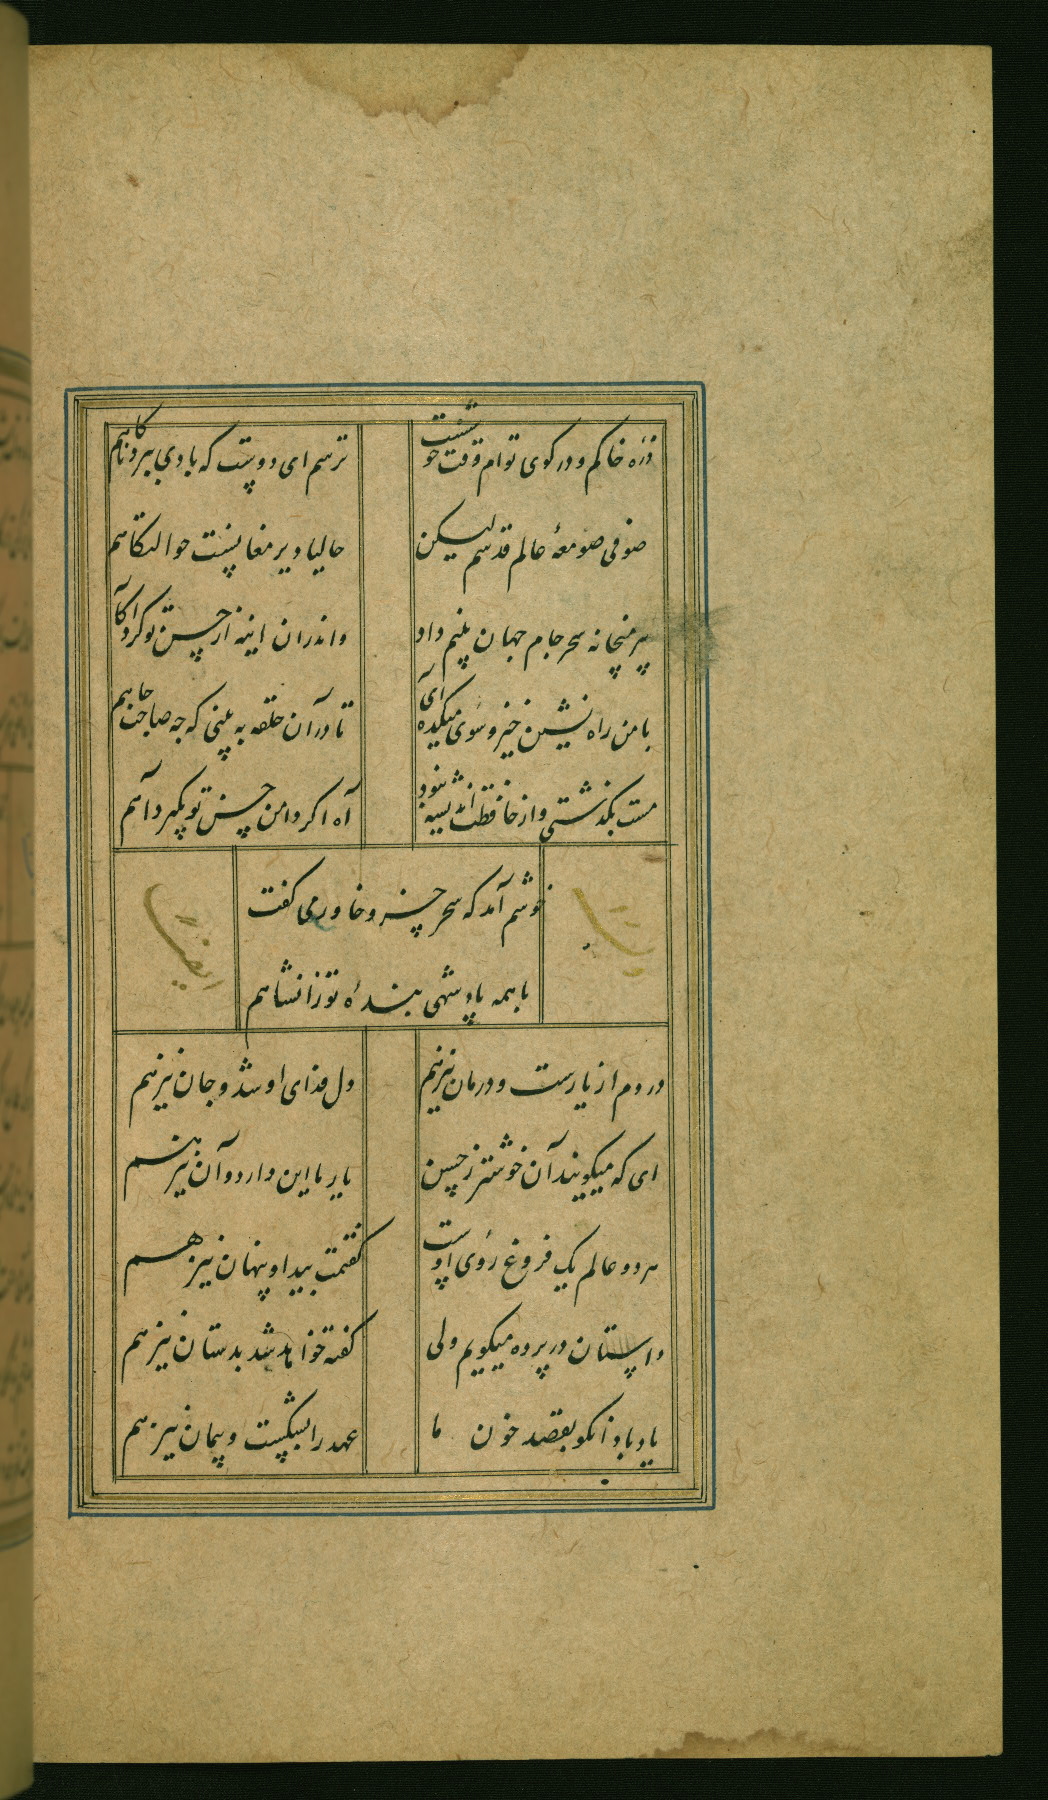 ذره خاکم و در کوی توام وقت خوشست
ترسم ای دوست که بادی ببرد ناگاهم
صوفی صومعهٔ عالم قدسم لیکن
حالیا دیر مغانست حوالتگاهم
پیر میخانه سحر جام جهان بینم داد
واندران اینه از حسن تو کرد آگاهم
با من راه نشین خیز و سوی میکده آی
تا در آن حلقه به بینی که چه صاحب جاهم
مست بگذشتی و از حافظت اندیشه نبود
آه اگر دامن حسن تو بگیرد آهم
خوشم آمد که سحر خسرو خاور می گفت
با همه پادشهی بنده تورانشاهم
دردم از یارست و درمان نیز هم
دل فدای او شد و جان نیز هم
ای که میگویند آن خوشتر ز حسن
یار ما این دارد و آن نیز هم
هر دو عالم یک فروغ روی اوست
گفتمت پیدا و پنهان نیز هم
داستان در پرده میگویم ولی
گفته خواهد شد بدستان نیز هم
یاد باد انکو بقصد خون ما
عهد را بشکست و پیمان نیز هم